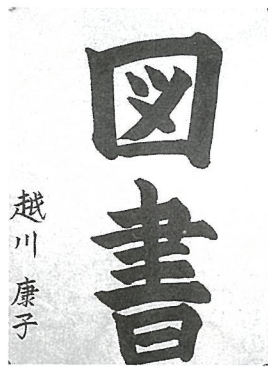 図書
越川 康子